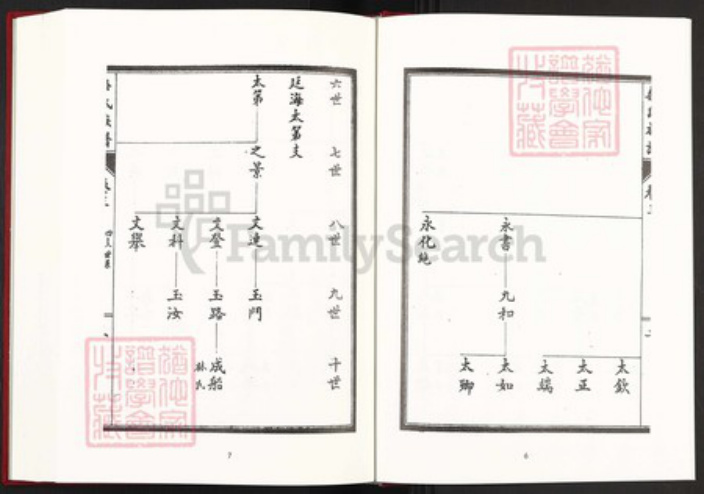 永書
九和
太欽
太正
太瑞
太如
太卿
永化
6
六世
七世
八世
九世
十世
廷海太第支
太第
之景
文進
文登
文科
文舉
玉門
玉路
玉汝
成船
孫氏
7
FamilySearch